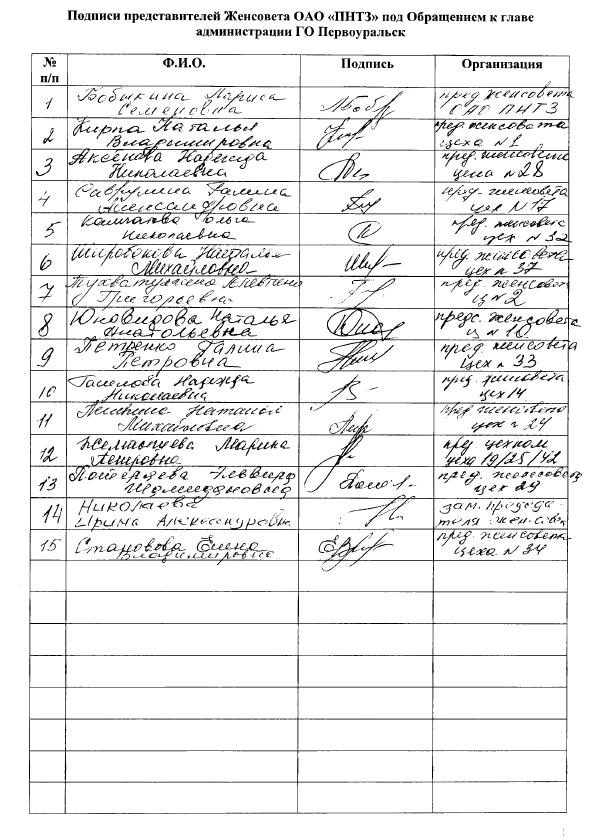 Подписи представителей Женсовета ОАО «ПНТЗ» под Обращением к главе
администрации ГО Первоуральск
№
п/п
Ф.И.О.
Подпись
Организация
1 Бобыкина Лариса
Семеновна
пред женсовета
ОАО ПНТЗ
2 Кирпа Наталья
Владимировна
пред. женсовета
цеха №1
3 Аксенова Надежда
Николаевна
пред. женсовета
цеха №28
4 Галина
Александровна
пред. женсовета
цех №17
5 Ольга
Николаевна
пред. женсовет
цех №32
6 Широбокова Наталья
Михайловна
пред. женсовета
цех №37
7
Григорьевна
пред. женсовет
ц №2
8 Наталья
Анатольевна
предс. женсовета
ц №10
9 Петренко Галина
Петровна
пред. женсовета
цех № 33
10 Надежда
Николаевна
пред. женсовета
цех 14
11 Наталья
Михайловна
пред женсовета
цех № 24
12 Марина
Петровна
пред цехком
цеха 19/25/42
13
пред. женсовета
цех 29
14 Николаева
Ирина Александровна
зам. председа-
теля жен.совета
15 Становова Елена
Владимировна
пред. женсовета
цеха №34